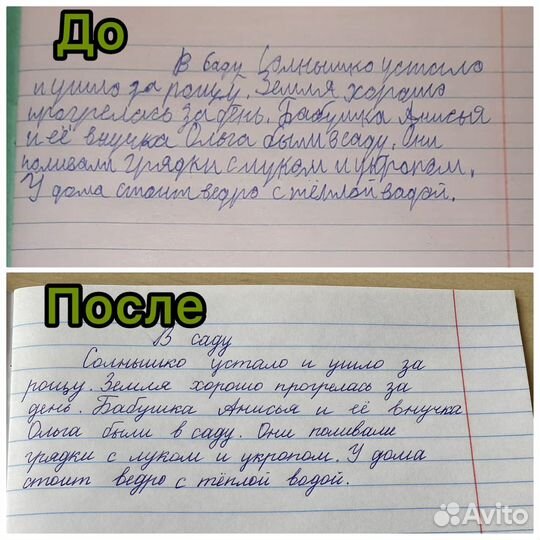 До
В саду Солнышко устало
и ушло за рощу. Земля хорошо
прогрелась за день. Бабушка Анисья
и её внучка Ольга были в саду. Они
поливали грядки с луком и укропом.
У дома стоит ведро с тёплой водой.
После
В саду
Солнышко устало и ушло за
рощу. Земля хорошо прогрелась за
день. Бабушка Анисья и её внучка
Ольга были в саду. Они поливали
грядки с луком и укропом. У дома
стоит ведро с тёплой водой.
Avito